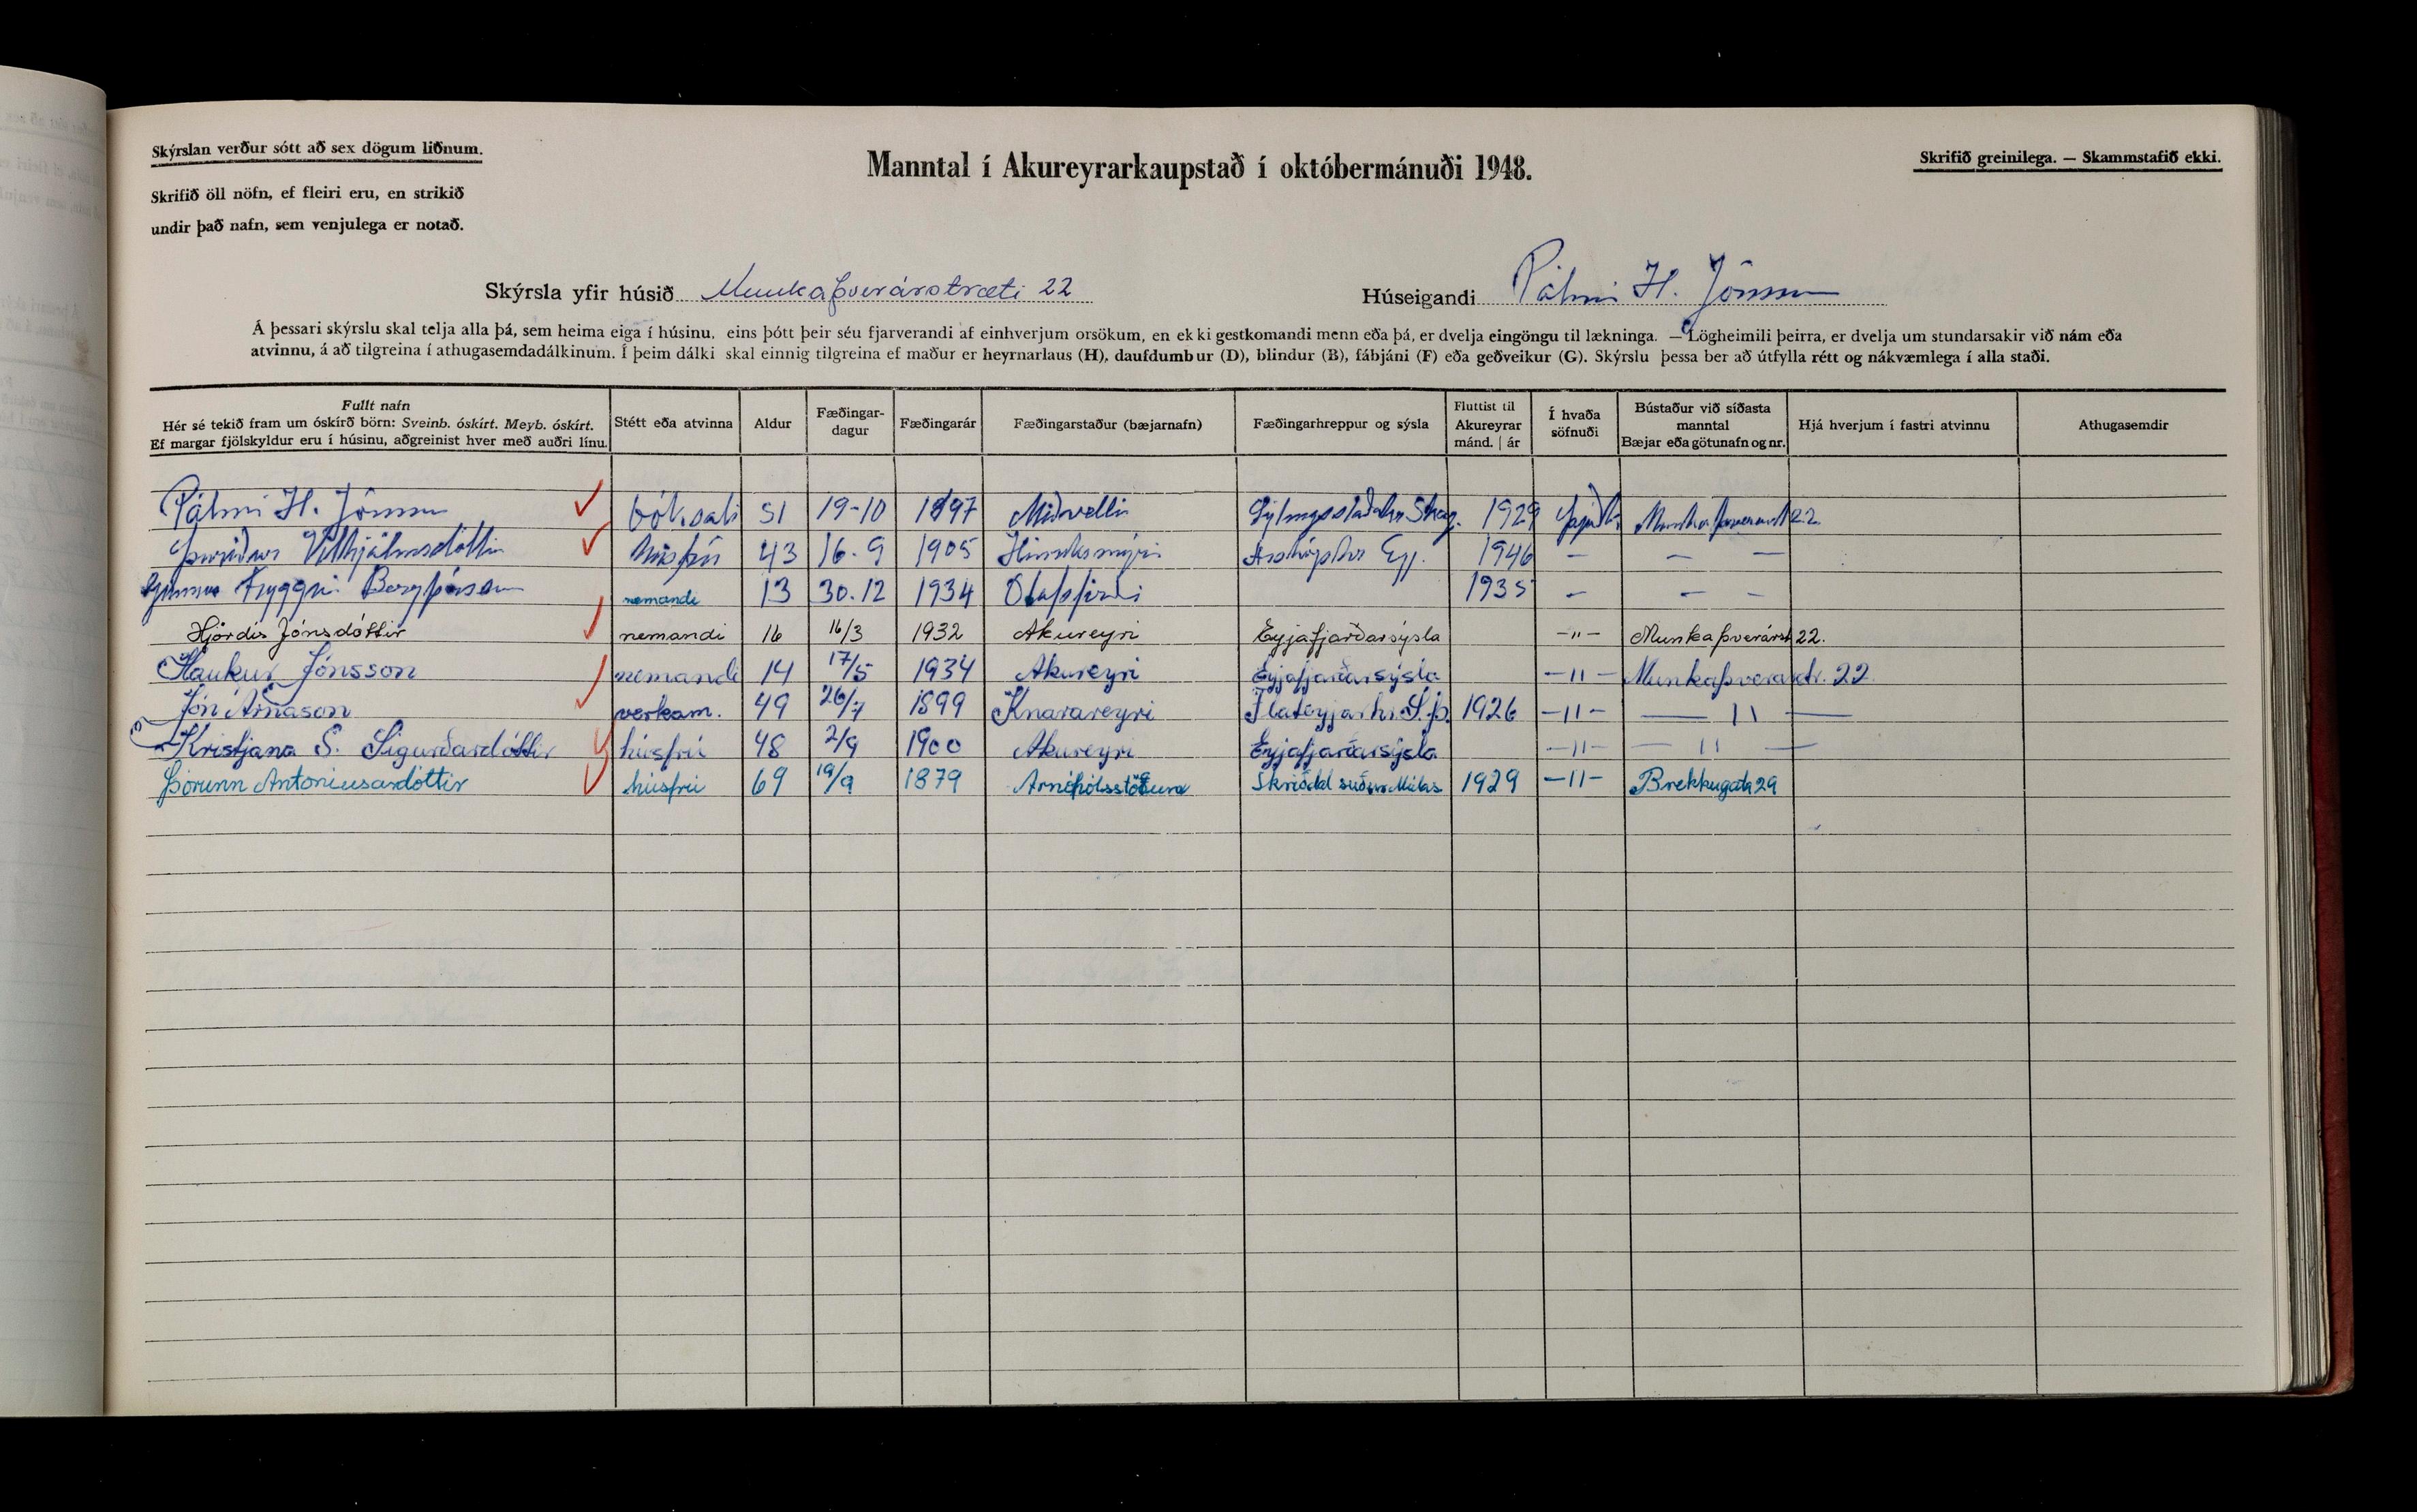 Skýrslan verður sótt að sex dögum liðnum.
Manntal í Akureyrarkaupstað í októbermánuði 1948.
Skrifið greinilega. — Skammstafið ekki.
Skrifið öll nöfn, ef fleiri eru, en strikið
undir það nafn, sem venjulega er notað.
Skýrsla yfir húsið Munkaþverárstræti 22 Húseigandi Pálmi H. Jónsson
Á þessari skýrslu skal telja alla þá, sem heima eiga í húsinu, eins þótt þeir séu fjarverandi af einhverjum orsökum, en ekki gestkomandi menn eða þá, er dvelja eingöngu til lækninga. — Lögheimili þeirra, er dvelja um stundarsakir við nám eða
atvinnu, á að tilgreina í athugasemdadálkinum. Í þeim dálki skal einnig tilgreina ef maður er heyrnarlaus (H), daufdumbur (D), blindur (B), fábjáni (F) eða geðveikur (G). Skýrslu þessa ber að útfylla rétt og nákvæmlega í alla staði.
Fullt nafn
Hér sé tekið fram um óskírð börn: Sveinb. óskírt. Meyb. óskírt.
Ef margar fjölskyldur eru í húsinu, aðgreinist hver með auðri línu.
Stétt eða atvinna
Aldur
Fæðingar-
dagur
Fæðingarár
Fæðingarstaður (bæjarnafn)
Fæðingarhreppur og sýsla
Fluttist til
Akureyrar
mánd. | ár
Í hvaða
söfnuði
Bústaður við síðasta
manntal
Bæjar eða götunafn og nr.
Hjá hverjum í fastri atvinnu
Athugasemdir
Pálmi H. Jónsson bóksali 51 19-10 1897 Skag. 1929 22
Þuríður Vilhjálmsdóttir húsfrú 43 16.9 1905 Eyj. 1946 — — —
Gunnar Tryggvi Bergþórsson nemandi 13 30.12 1934 Ólafsfirði 1935 — — —
Hjördís Jónsdóttir nemandi 16 16/3 1932 Akureyri Eyjafjarðarsýsla -"- Munkaþverárst 22.
Haukur Jónsson nemandi 14 17/5 1934 Akureyri Eyjafjarðarsýsla -"- Munkaþverárstr. 22
Jón Árnason verkam. 49 26/7 1899 Knarareyri Flateyjarhr. S.Þ. 1926 -"- — " —
Kristjana S. Sigurðardóttir húsfrú 48 2/9 1900 Akureyri Eyjafjarðarsýsla -"- — " —
Þórunn Antoníusardóttir húsfrú 69 19/9 1879 Arnhólsstöðum Skriðdal suður Múlas 1929 -"- Brekkugata 29